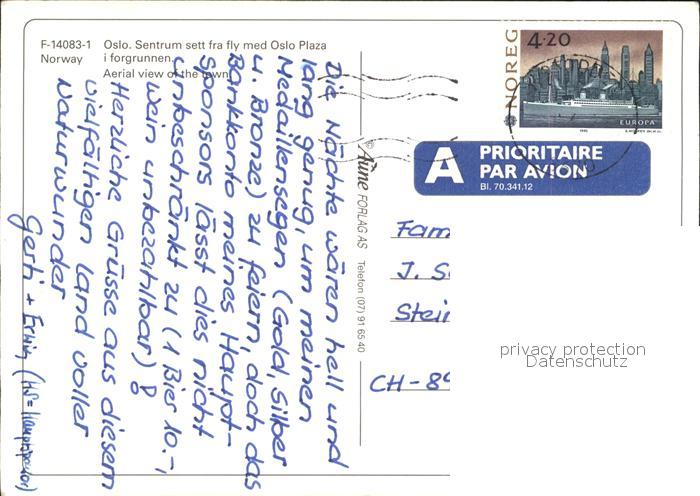 F-14083-1 Oslo. Sentrum sett fra fly med Oslo Plaza
Norway i forgrunnen.
Aerial view of the town.
Die Nächte wären hell und
lang genug, um meinen
Medaillensegen (Gold, Silber
u. Bronze) zu feiern, doch das
Bankkonto meines Haupt-
sponsors lässt dies nicht
unbeschränkt zu (1 Bier 10.-,
wein unbezahlbar)!
Herzliche Grüsse aus diesem
vielfältigen Land voller
Naturwunder
Gerti + Erwin (HS = Hauptsponsor)
© Aune FORLAG AS Telefon (07) 91 65 40
NOREG
4·20
EUROPA
1992
A PRIORITAIRE
PAR AVION
Bl. 70.341.12
Fam
J. S
Stei
CH-89
privacy protection
Datenschutz